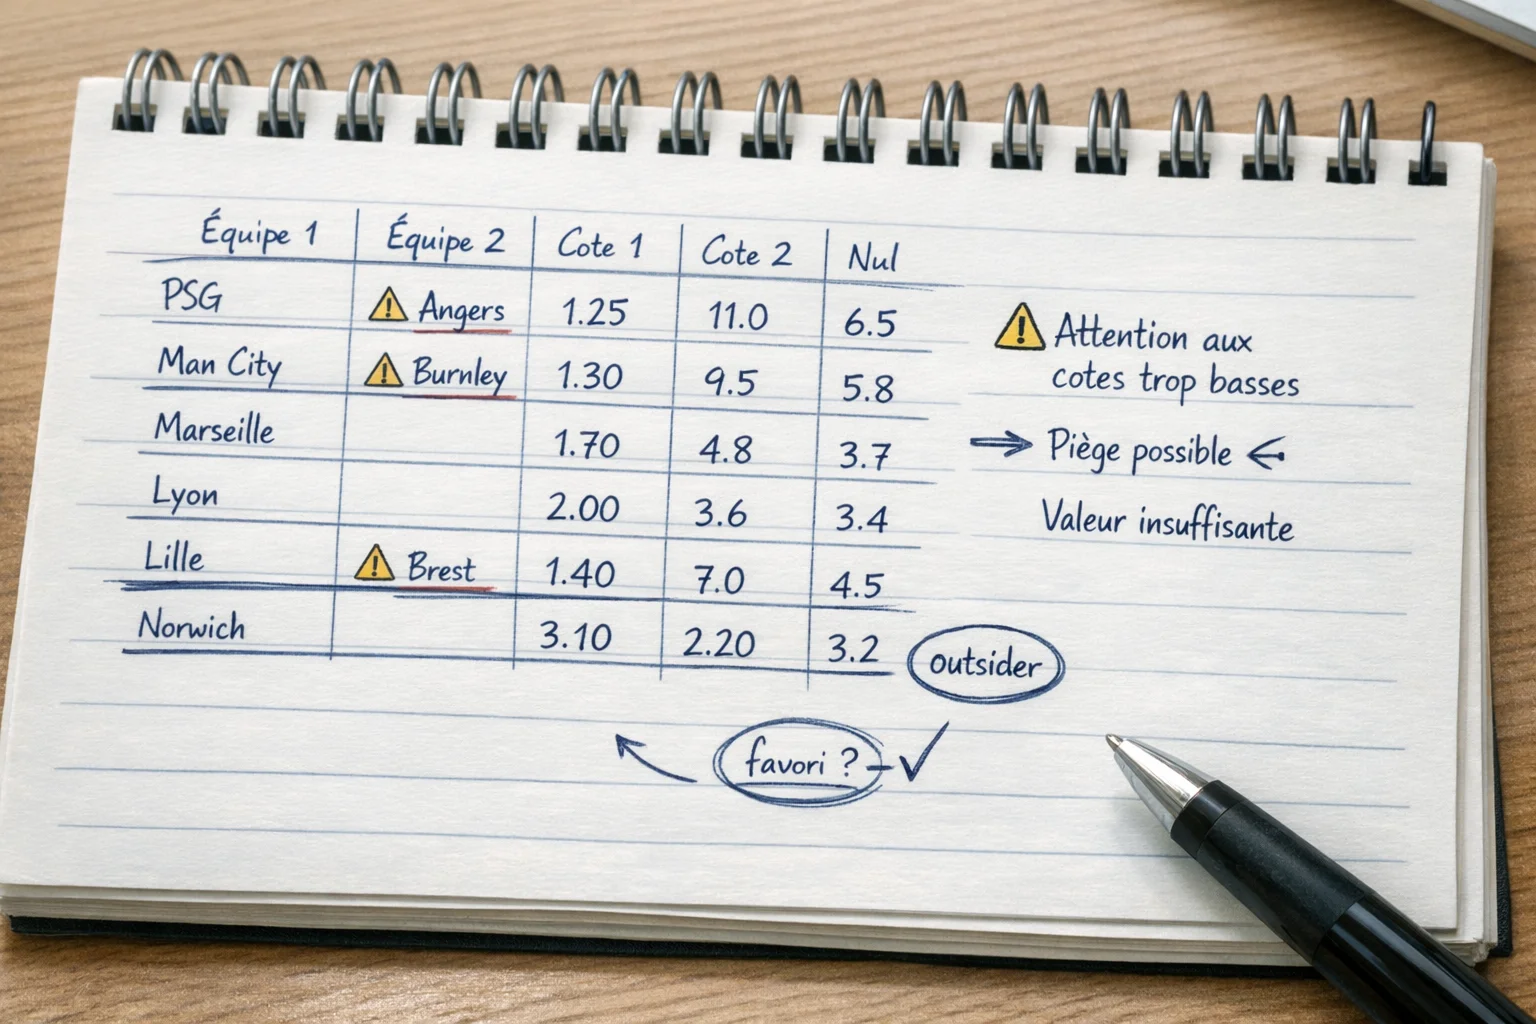 Équipe 1 Équipe 2 Cote 1 Cote 2 Nul
PSG ⚠ Angers 1.25 11.0 6.5
Man City ⚠ Burnley 1.30 9.5 5.8
Marseille 1.70 4.8 3.7
Lyon 2.00 3.6 3.4
Lille ⚠ Brest 1.40 7.0 4.5
Norwich 3.10 2.20 3.2
outsider
favori ? – ✓
⚠ Attention aux
cotes trop basses
→ Piège possible ←
Valeur insuffisante